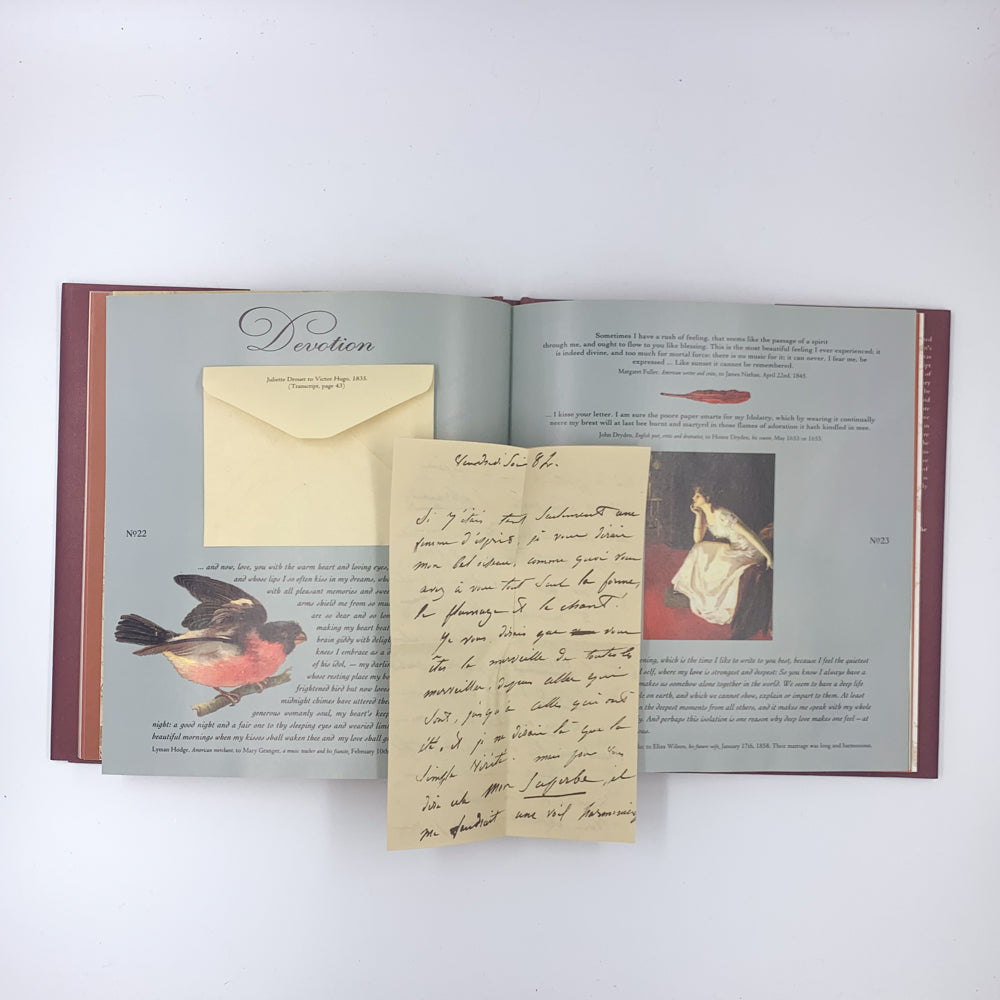 Devotion
Juliette Drouet to Victor Hugo, 1835.
(Transcript, page 43)
Nº22
... and now, love, you with the warm heart and loving eyes,
and whose lips I so often kiss in my dreams, who
with all pleasant memories and swee
arms shield me from so mu
are so dear and so lon
making my heart beat
brain giddy with deligh
knees I embrace as a d
of his idol, — my darlin
whose resting place my bo
frightened bird but now loves
midnight chimes have uttered the
generous womanly soul, my heart's keep
night: a good night and a fair one to thy sleeping eyes and wearied lim
beautiful mornings when my kisses shall waken thee and my love shall g
Lyman Hodge, American merchant, to Mary Granger, a music teacher and his fiancée, February 10th
Vendredi Soir 8 h.
Si j'étais tout seulement une
femme d'esprit, je vous dirais
mon bel oiseau, comme quoi vous
avez à vous tout seul la forme,
le plumage et le chant!
Je vous dirais que vous
êtes la merveille de toutes les
merveilles, depuis celles qui
sont, jusqu'à celles qui ont
été, et je ne dirais là que la
simple vérité. mais pour vous
dire cela mon Superbe, il
me faudrait une voix harmonieuse
Sometimes I have a rush of feeling, that seems like the passage of a spirit
through me, and ought to flow to you like blessing. This is the most beautiful feeling I ever experienced; it
is indeed divine, and too much for mortal force: there is no music for it; it can never, I fear me, be
expressed ... Like sunset it cannot be remembered.
Margaret Fuller, American writer and critic, to James Nathan, April 22nd, 1845.
... I kisse your letter. I am sure the poore paper smarts for my Idolatry, which by wearing it continually
neere my brest will at last bee burnt and martyrd in those flames of adoration it hath kindled in mee.
John Dryden, English poet, critic and dramatist, to Honor Dryden, his cousin, May 1653 or 1655.
Nº23
ening, which is the time I like to write to you best, because I feel the quietest
self, where my love is strongest and deepest: So you know I always have a
le on earth, and which we cannot show, explain or impart to them. At least
the deepest moments from all others, and it makes me speak with my whole
makes us somehow alone together in the world. We seem to have a deep life
y. And perhaps this isolation is one reason why deep love makes one feel – at
to Eliza Wilson, his future wife, January 17th, 1858. Their marriage was long and harmonious.